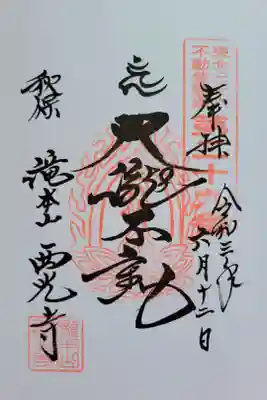 奉拝
令和三年
六月十二日
大瀧不動
秋保
滝本山 西光寺